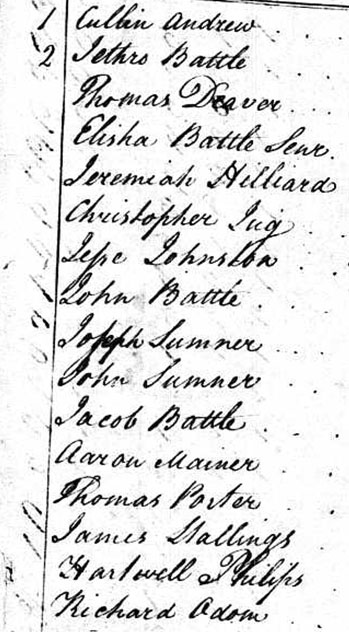 1 Cullin Andrew
2 Jethro Battle
Thomas Deaver
Elisha Battle Senr.
Jeremiah Hilliard
Christopher
Jesse Johnston
John Battle
Joseph Sumner
John Sumner
Jacob Battle
Aaron Mainer
Thomas Porter
James Stallings
Hartwell Philips
Richard Odom